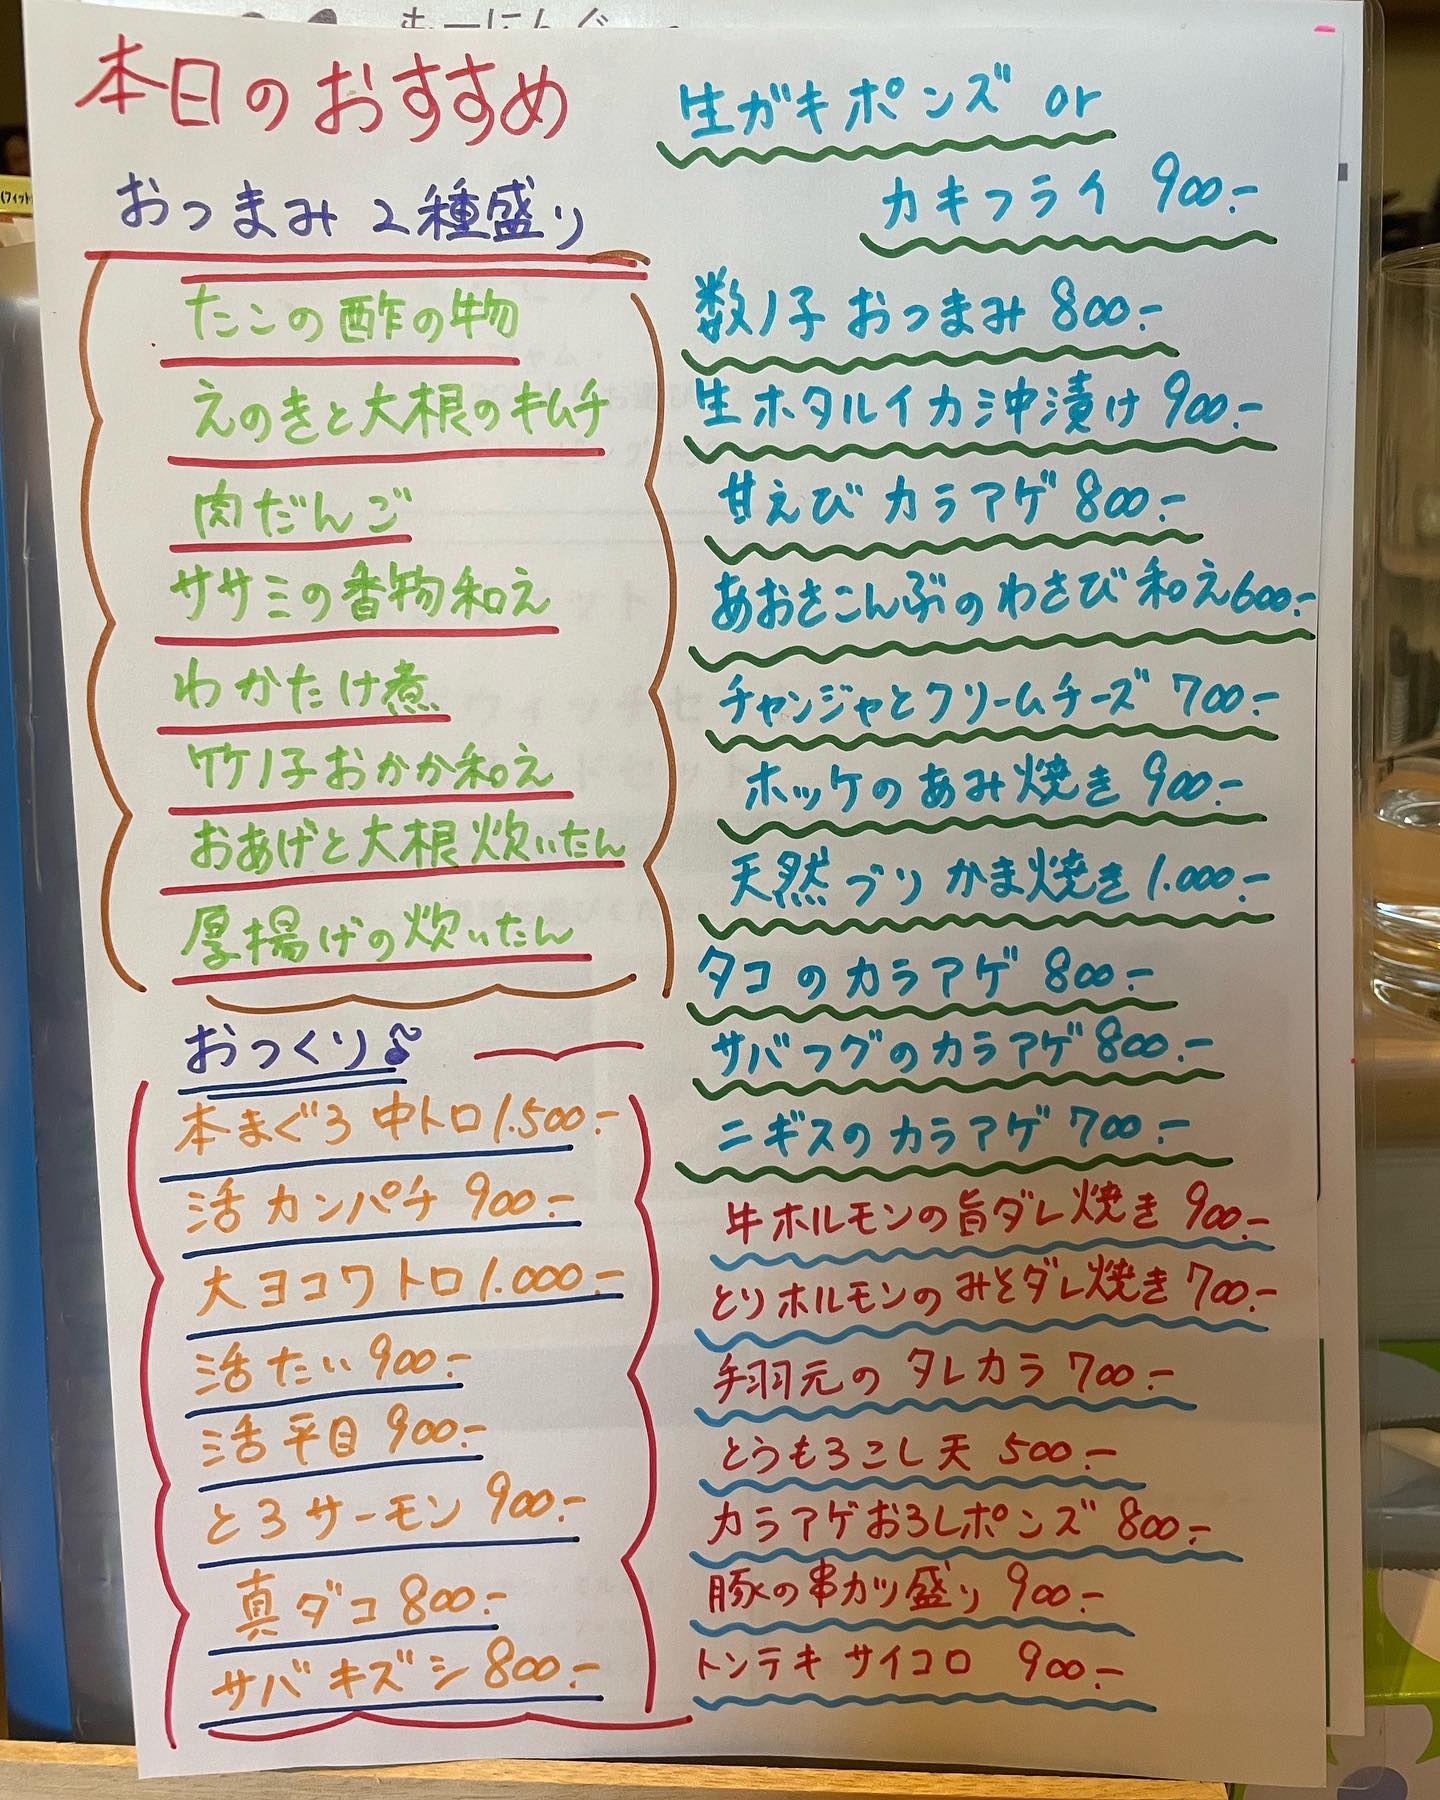 本日のおすすめ
おつまみ2種盛り
たこの酢の物
えのきと大根のキムチ
肉だんご
ササミの香物和え
わかたけ煮
竹ノ子おかか和え
おあげと大根炊いたん
厚揚げの炊いたん
おつくり♪
本まぐろ中トロ1.500.-
活カンパチ900.-
大ヨコワトロ1.000.-
活たい900.-
活平目900.-
とろサーモン900.-
真ダコ800.-
サバキズシ800.-
生ガキポンズ or
カキフライ 900.-
数ノ子おつまみ800.-
生ホタルイカ沖漬け900.-
甘えびカラアゲ800.-
あおさこんぶのわさび和え600.-
チャンジャとクリームチーズ700.-
ホッケのあみ焼き900.-
天然ブリかま焼き1.000.-
タコのカラアゲ800.-
サバフグのカラアゲ800.-
ニギスのカラアゲ700.-
牛ホルモンの旨ダレ焼き900.-
とりホルモンのみそダレ焼き700.-
手羽元のタレカラ700.-
とうもろこし天500.-
カラアゲおろしポンズ800.-
豚の串カツ盛り900.-
トンテキサイコロ 900.-